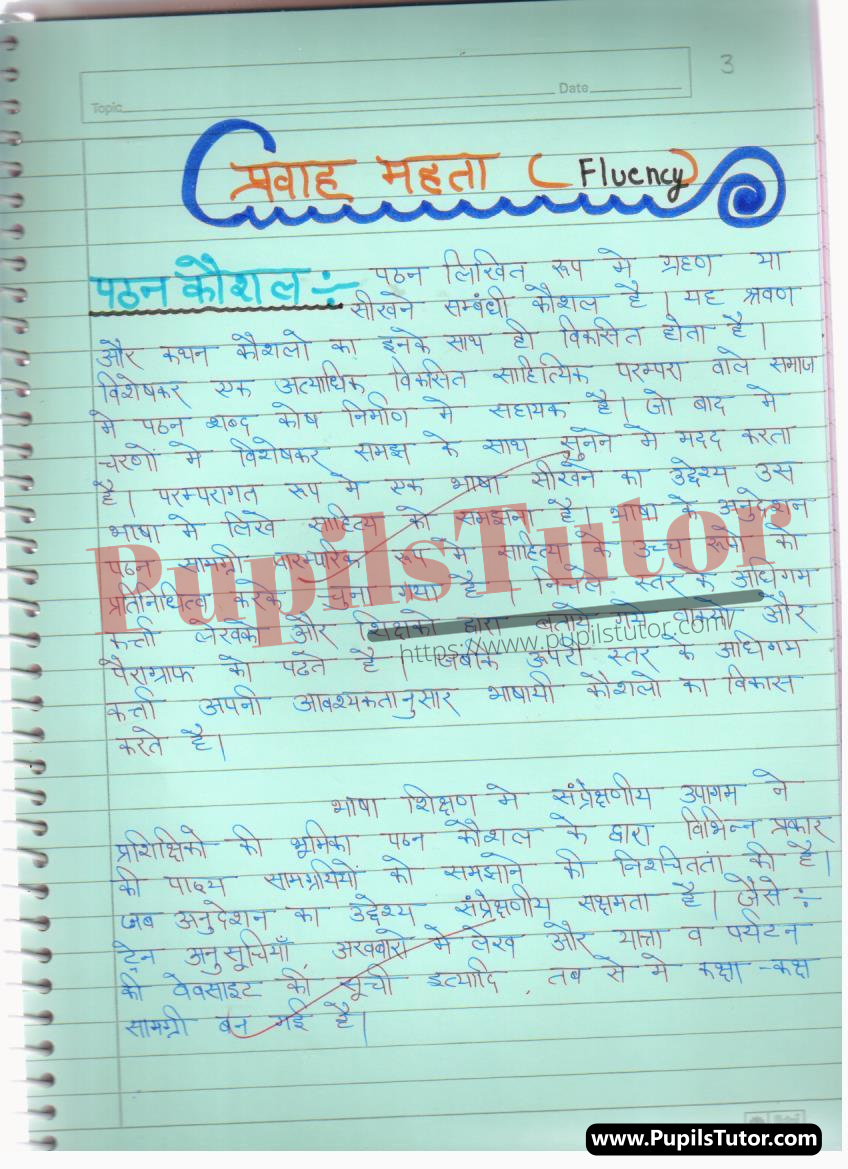 3
Topic
Date
प्रवाह महता ( Fluency)
पठन कौशल :- पठन लिखित रूप मे ग्रहण या
सीखने सम्बंधी कौशल है। यह श्रवण
और कथन कौशलो का इनके साथ ही विकसित होता है।
विशेषकर एक अत्याधिक विकसित साहित्यिक परम्परा वाले समाज
मे पठन शब्द कोष निर्माण मे सहायक है। जो बाद मे
चरणों मे विशेषकर समझ के साथ सुनने मे मदद करता
है। परम्परागत रूप मे एक भाषा सीखने का उद्देश्य उस
भाषा मे लिखे साहित्य को समझना है। भाषा के अनुदेशन
पठन सामग्री पारम्परिक रूप मे साहित्य के उच्च रूपो को
प्रतिनिधित्व करके चुना गया है। निचले स्तर के अधिगम
कर्त्ता लेखको और शिक्षको द्वारा बताये गये और
पैराग्राफ को पढते है। जबकि ऊपरी स्तर के अधिगम
कर्त्ता अपनी आवश्यकतानुसार भाषायी कौशलो का विकास
करते है।
भाषा शिक्षण मे संप्रेक्षणीय उपागम ने
प्रशिक्षिको की भूमिका पठन कौशल के द्वारा विभिन्न प्रकार
की पाठ्य सामग्रयियों को समझाने की निशचितता की है।
जब अनुदेशन का उद्देश्य संप्रेक्षणीय सक्षमता है। जैसे :-
ट्रेन अनुसूचियाँ, अखबारो मे लेख और यात्ता व पर्यटन
की वेवसाइट की सूची इत्यादि, तब से मे कक्षा -कक्ष
सामग्री बन गई है।
PupilsTutor
https://www.pupilstutor.com/
www.PupilsTutor.com